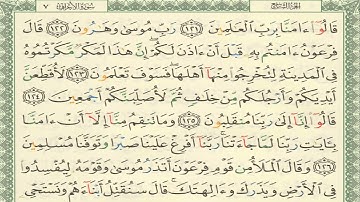 الجزء التاسع
٧
سورة الأعراف
قَالُوٓا۟ ءَامَنَّا بِرَبِّ ٱلْعَـٰلَمِينَ ١٢١ رَبِّ مُوسَىٰ وَهَـٰرُونَ ١٢٢ قَالَ
فِرْعَوْنُ ءَامَنتُم بِهِۦ قَبْلَ أَنْ ءَاذَنَ لَكُمْ إِنَّ هَـٰذَا لَمَكْرٌ مَّكَرْتُمُوهُ
فِى ٱلْمَدِينَةِ لِتُخْرِجُوا۟ مِنْهَآ أَهْلَهَا فَسَوْفَ تَعْلَمُونَ ١٢٣ لَأُقَطِّعَنَّ
أَيْدِيَكُمْ وَأَرْجُلَكُم مِّنْ خِلَـٰفٍ ثُمَّ لَأُصَلِّبَنَّكُمْ أَجْمَعِينَ ١٢٤
قَالُوٓا۟ إِنَّآ إِلَىٰ رَبِّنَا مُنقَلِبُونَ ١٢٥ وَمَا تَنقِمُ مِنَّآ إِلَّآ أَنْ ءَامَنَّا
بِـَٔايَـٰتِ رَبِّنَا لَمَّا جَآءَتْنَا رَبَّنَآ أَفْرِغْ عَلَيْنَا صَبْرًا وَتَوَفَّنَا مُسْلِمِينَ
١٢٦ وَقَالَ ٱلْمَلَأُ مِن قَوْمِ فِرْعَوْنَ أَتَذَرُ مُوسَىٰ وَقَوْمَهُۥ لِيُفْسِدُوا۟
فِى ٱلْأَرْضِ وَيَذَرَكَ وَءَالِهَتَكَ قَالَ سَنُقَتِّلُ أَبْنَآءَهُمْ وَنَسْتَحْىِۦ